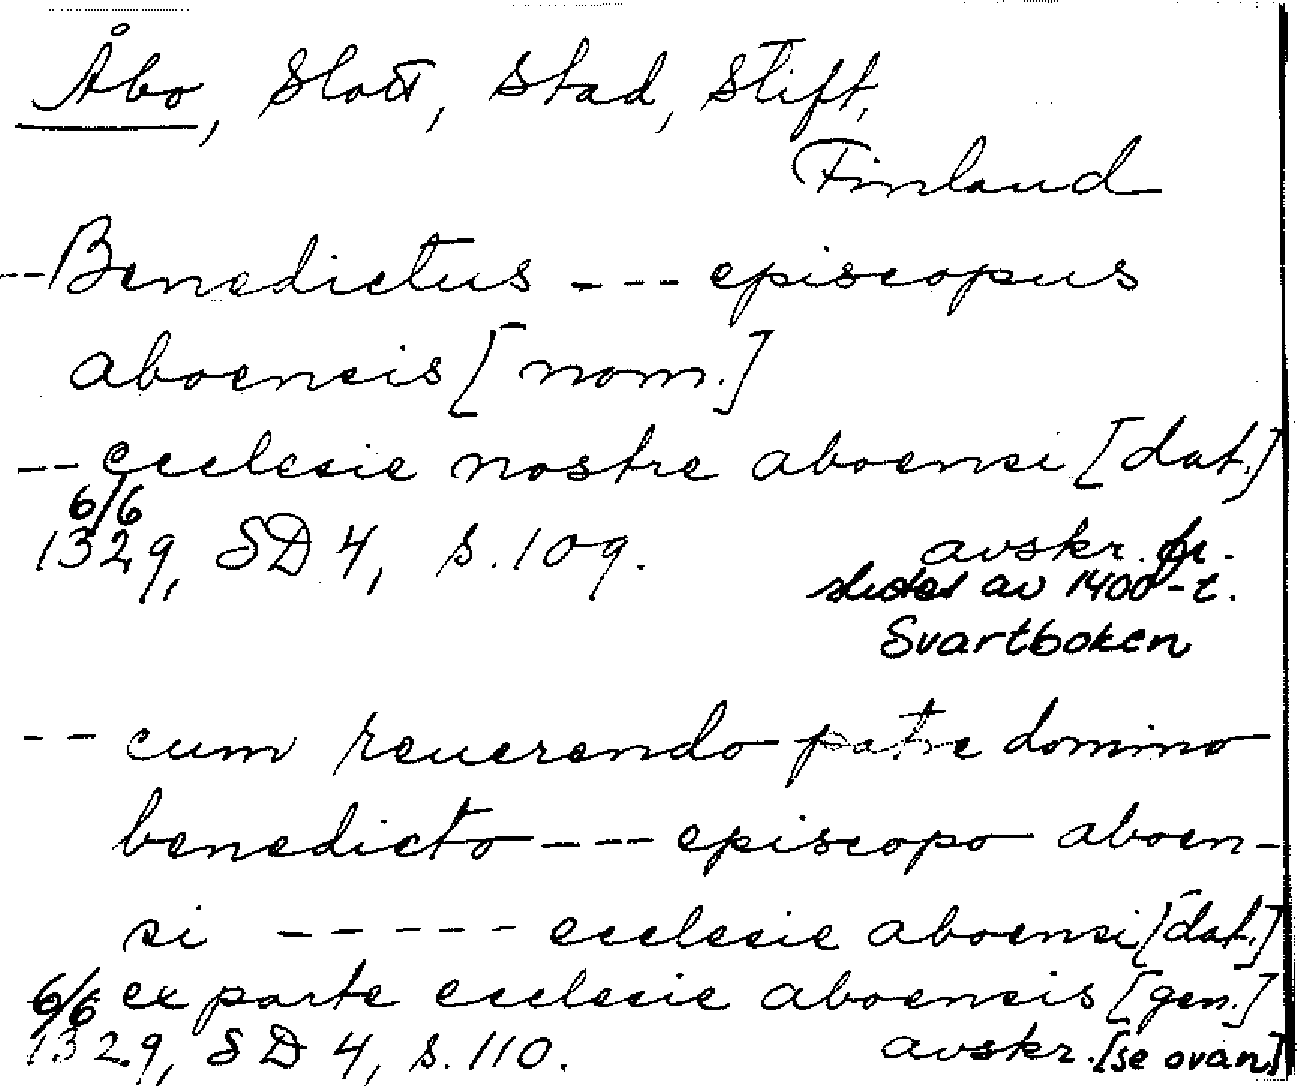 Åbo, Slott, Stad, Stift,
Finland
--Benedictus --- episcopus
aboensis [nom.]
-- ecclesie nostre aboensi [dat.]
6/6
1329, SD 4, s. 109. avskr. fr.
slutet av 1400-t.
Svartboken
-- cum reuerendo patre domino
benedicto --- episcopo aboen-
si ----- ecclesie aboensi [dat.]
6/6 ex parte ecclesie aboensis [gen.]
1329, SD 4, s. 110. avskr. [se ovan]